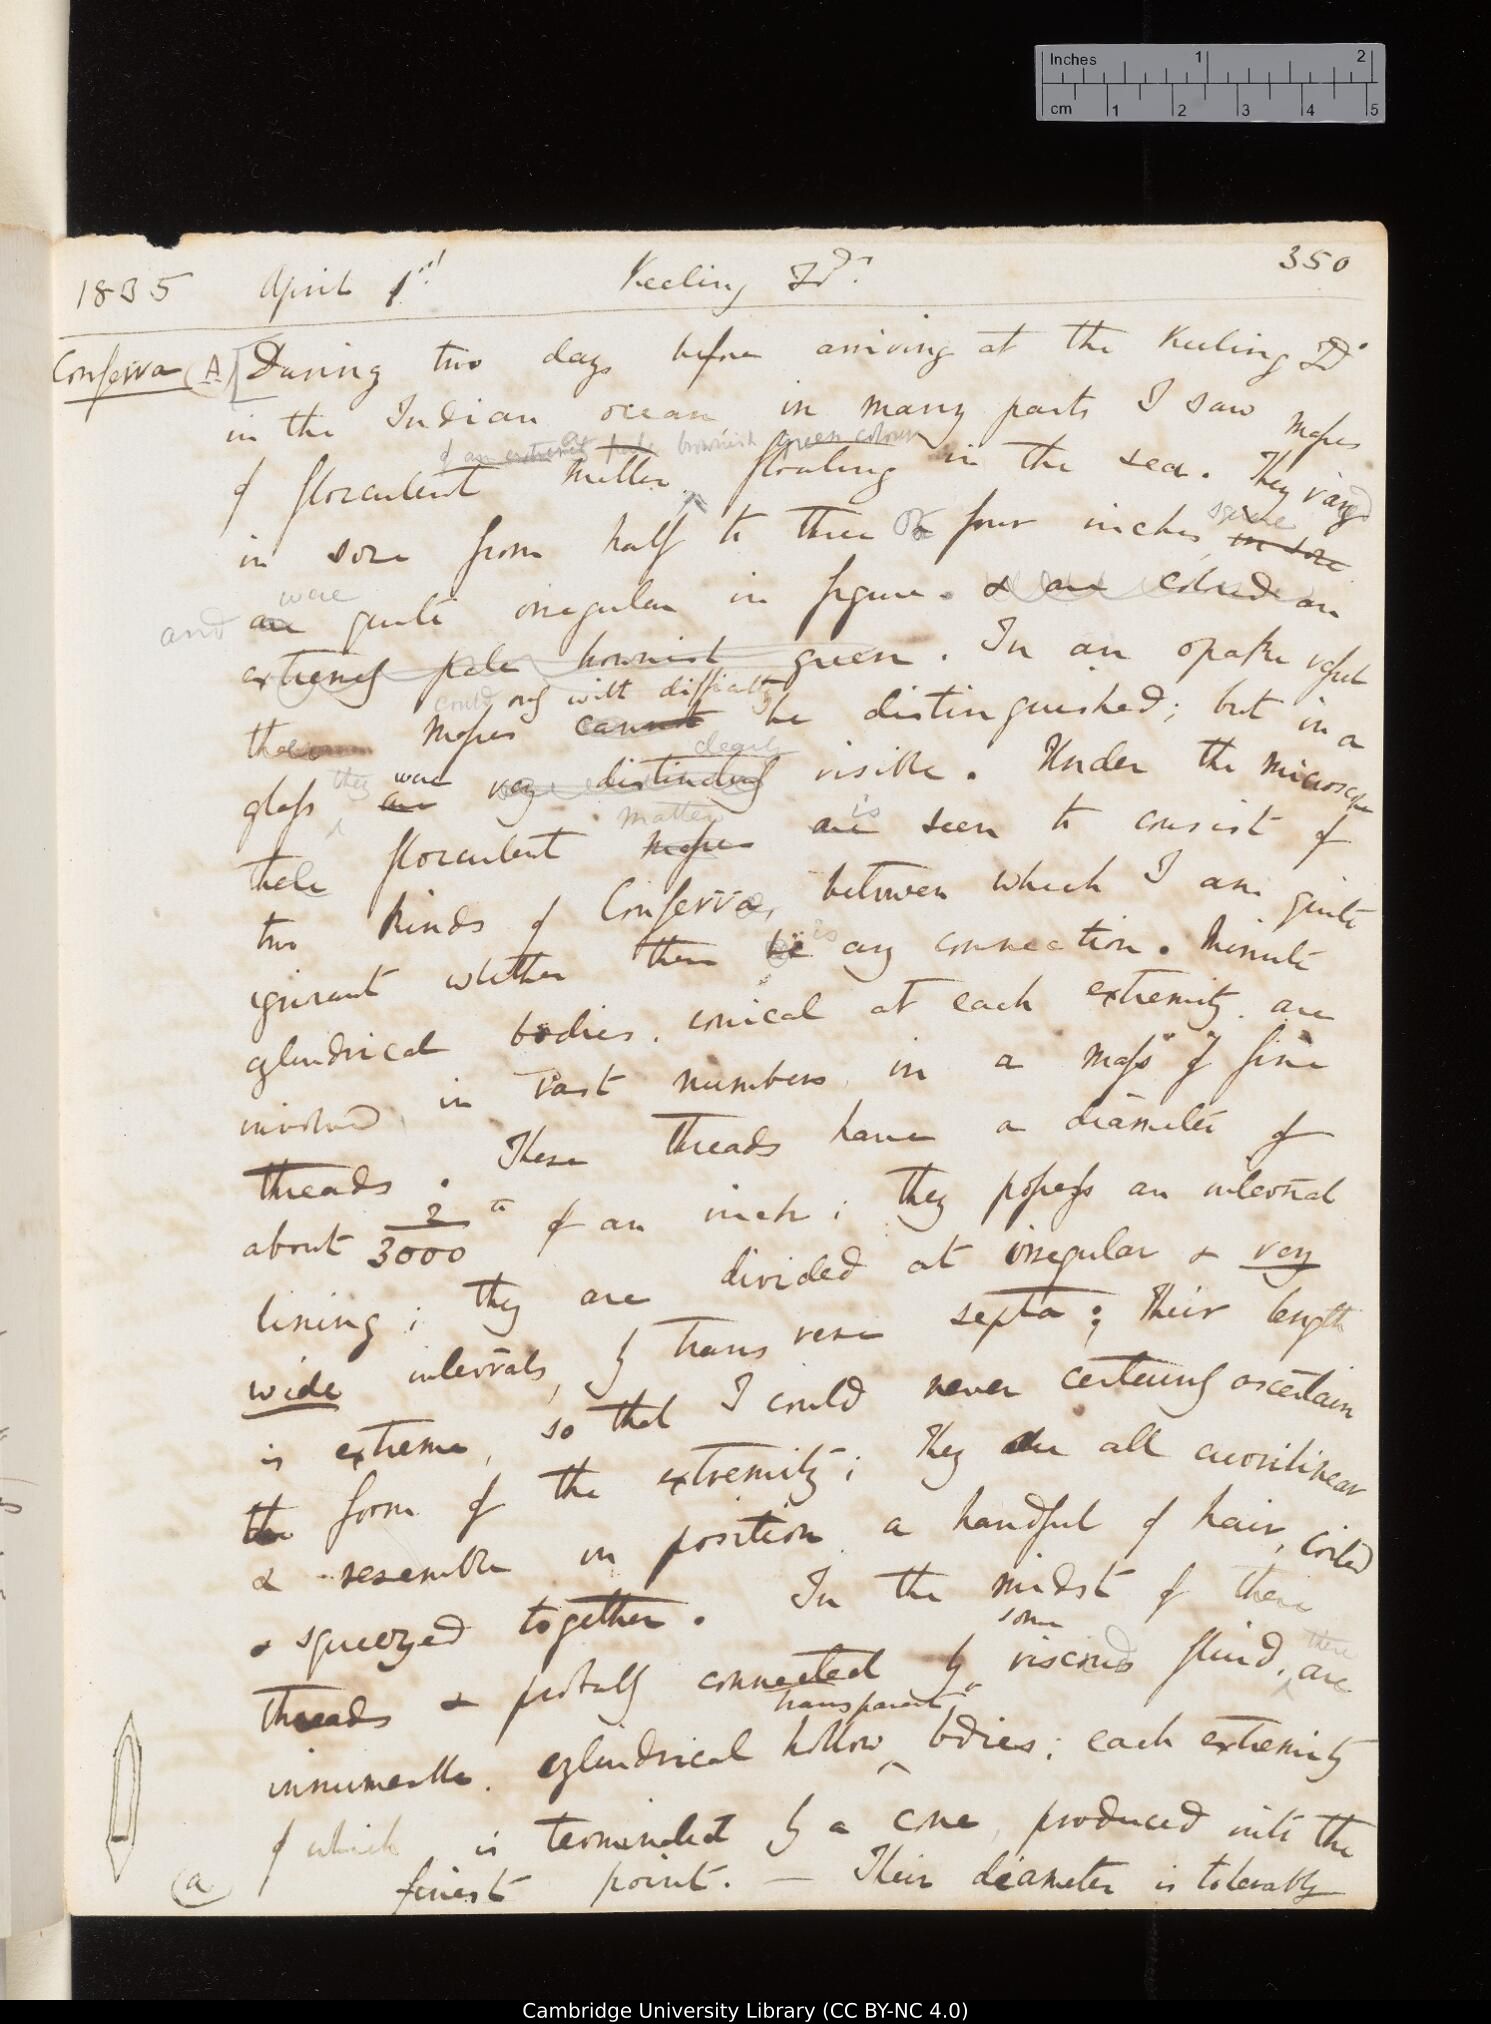 Inches 1 2
cm 1 2 3 4 5
350
1835 April 1st Keeling Isd:
Conferva (A) [During two days before arriving at the Keeling Isds
in the Indian ocean in many parts I saw masses
of an extremely a pale brownish green colour
of flocculent matter floating in the sea. They varyed
in size from half to three or four inches square in size
and are were quite irregular in figure. & are colored an
extremely pale brownish green. In an opake vessel
could only with difficulty
these masses cannot be distinguished; but in a
clearly
glass they are were very distinctly visible. Under the microscope
matter is
these flocculent masses are seen to consist of
two kinds of Confervae, between which I am quite
ignorant whether there be is any connection. Minute
cylindrical bodies, conical at each extremity, are
involved in vast numbers in a mass of fine
threads. These threads have a diameter of
about 2/3000th of an inch; they possess an internal
lining; they are divided at irregular & very
wide intervals, by transverse septa; Their length
is extreme, so that I could never certainly ascertain
the form of the extremity; they are all curvilinear
& resemble in position a handful of hair, coiled
& squeezed together. In the midst of these
some
threads & probably connected by viscous fluid, there are
transparent
innumerable cylindrical hollow bodies; each extremity
of which is terminated by a cone, produced into the
(a) finest point. — Their diameter is tolerably
Cambridge University Library (CC BY-NC 4.0)